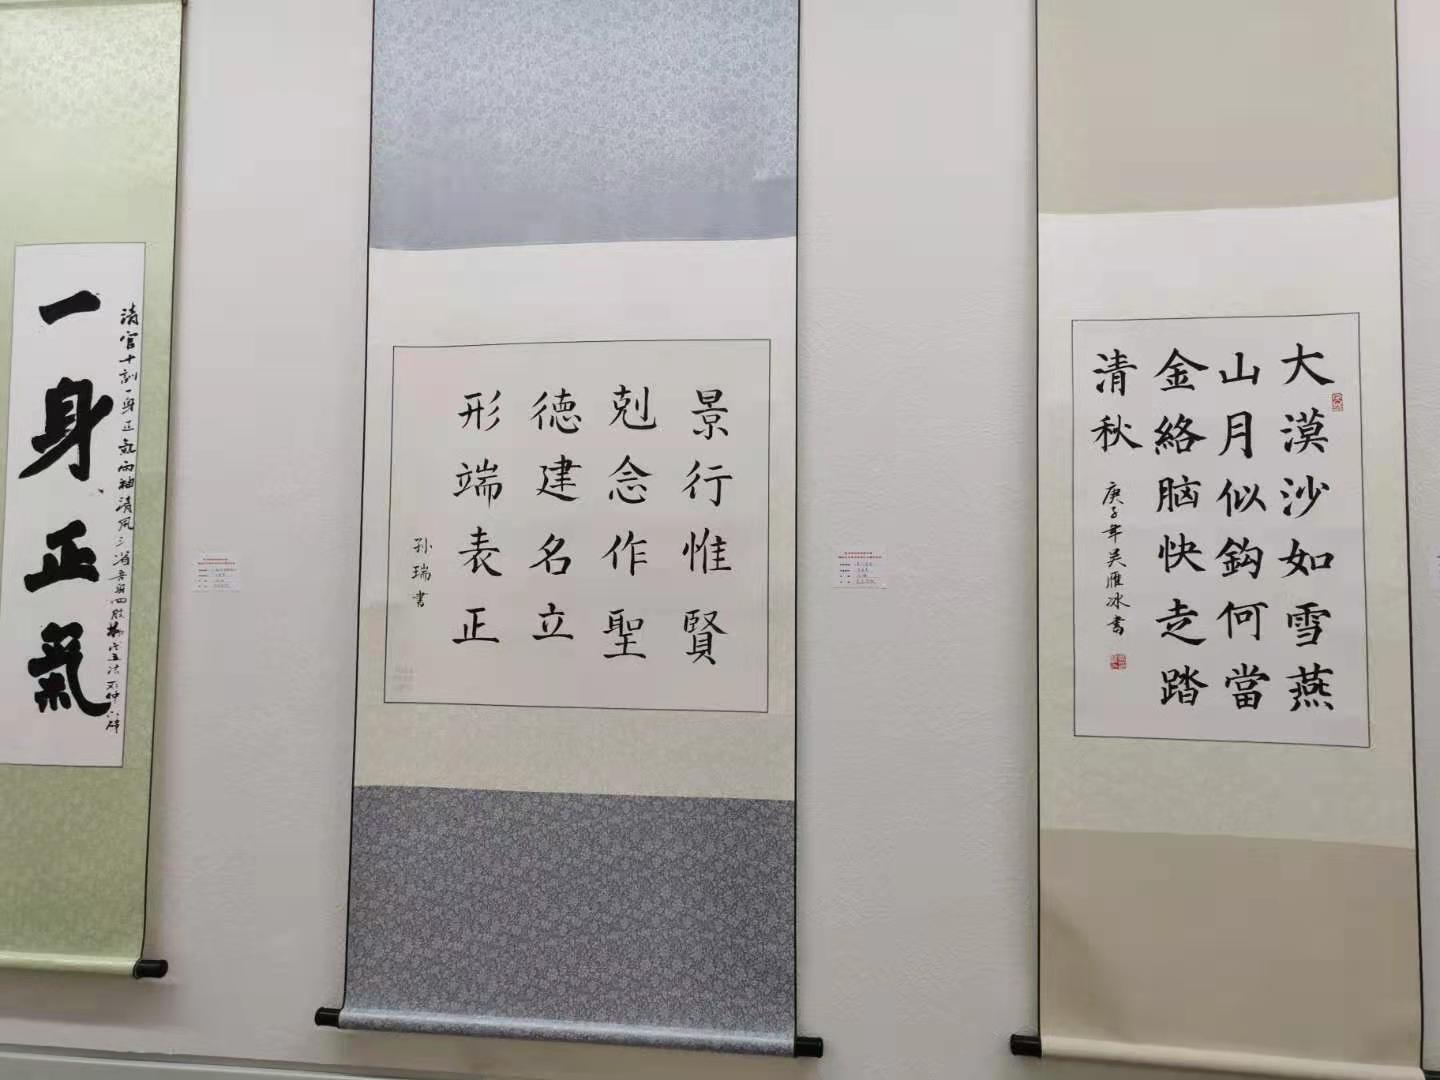 大漠沙如雪燕
山月似鈎何當
金絡脑快走踏
清秋
庚子年吴雁冰書
景行惟賢
剋念作聖
德建名立
形端表正
孙瑞書
清官十訓一身正氣两袖清风三省吾身四
一身正氣